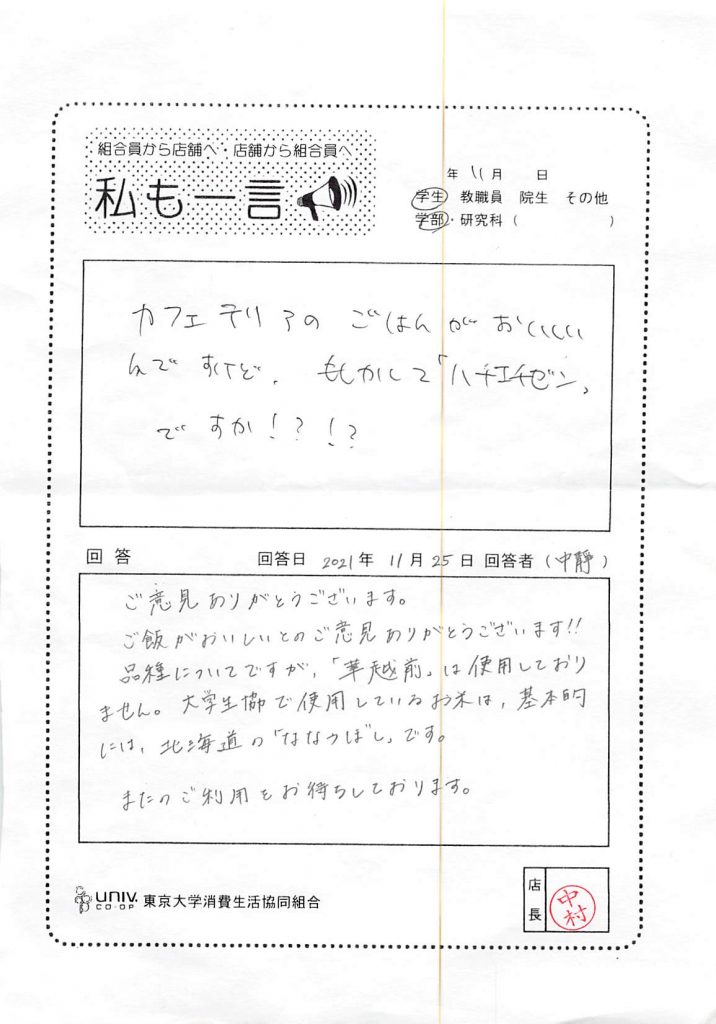 組合員から店舗へ・店舗から組合員へ
私も一言
年 11月 日
学生 教職員 院生 その他
学部・研究科( )
カフェテリアの ごはんが おいしい
んですけど、もしかして「ハナエチゼン」
ですか!?!?
回答 回答日 2021年 11月25日 回答者(中静)
ご意見ありがとうございます。
ご飯がおいしいとのご意見ありがとうございます!!
品種についてですが、「華越前」は使用しており
ません。大学生協で使用しているお米は、基本的
には、北海道の「ななつぼし」です。
またのご利用をお待ちしております。
UNIV.
CO-OP
東京大学消費生活協同組合
店長
中村